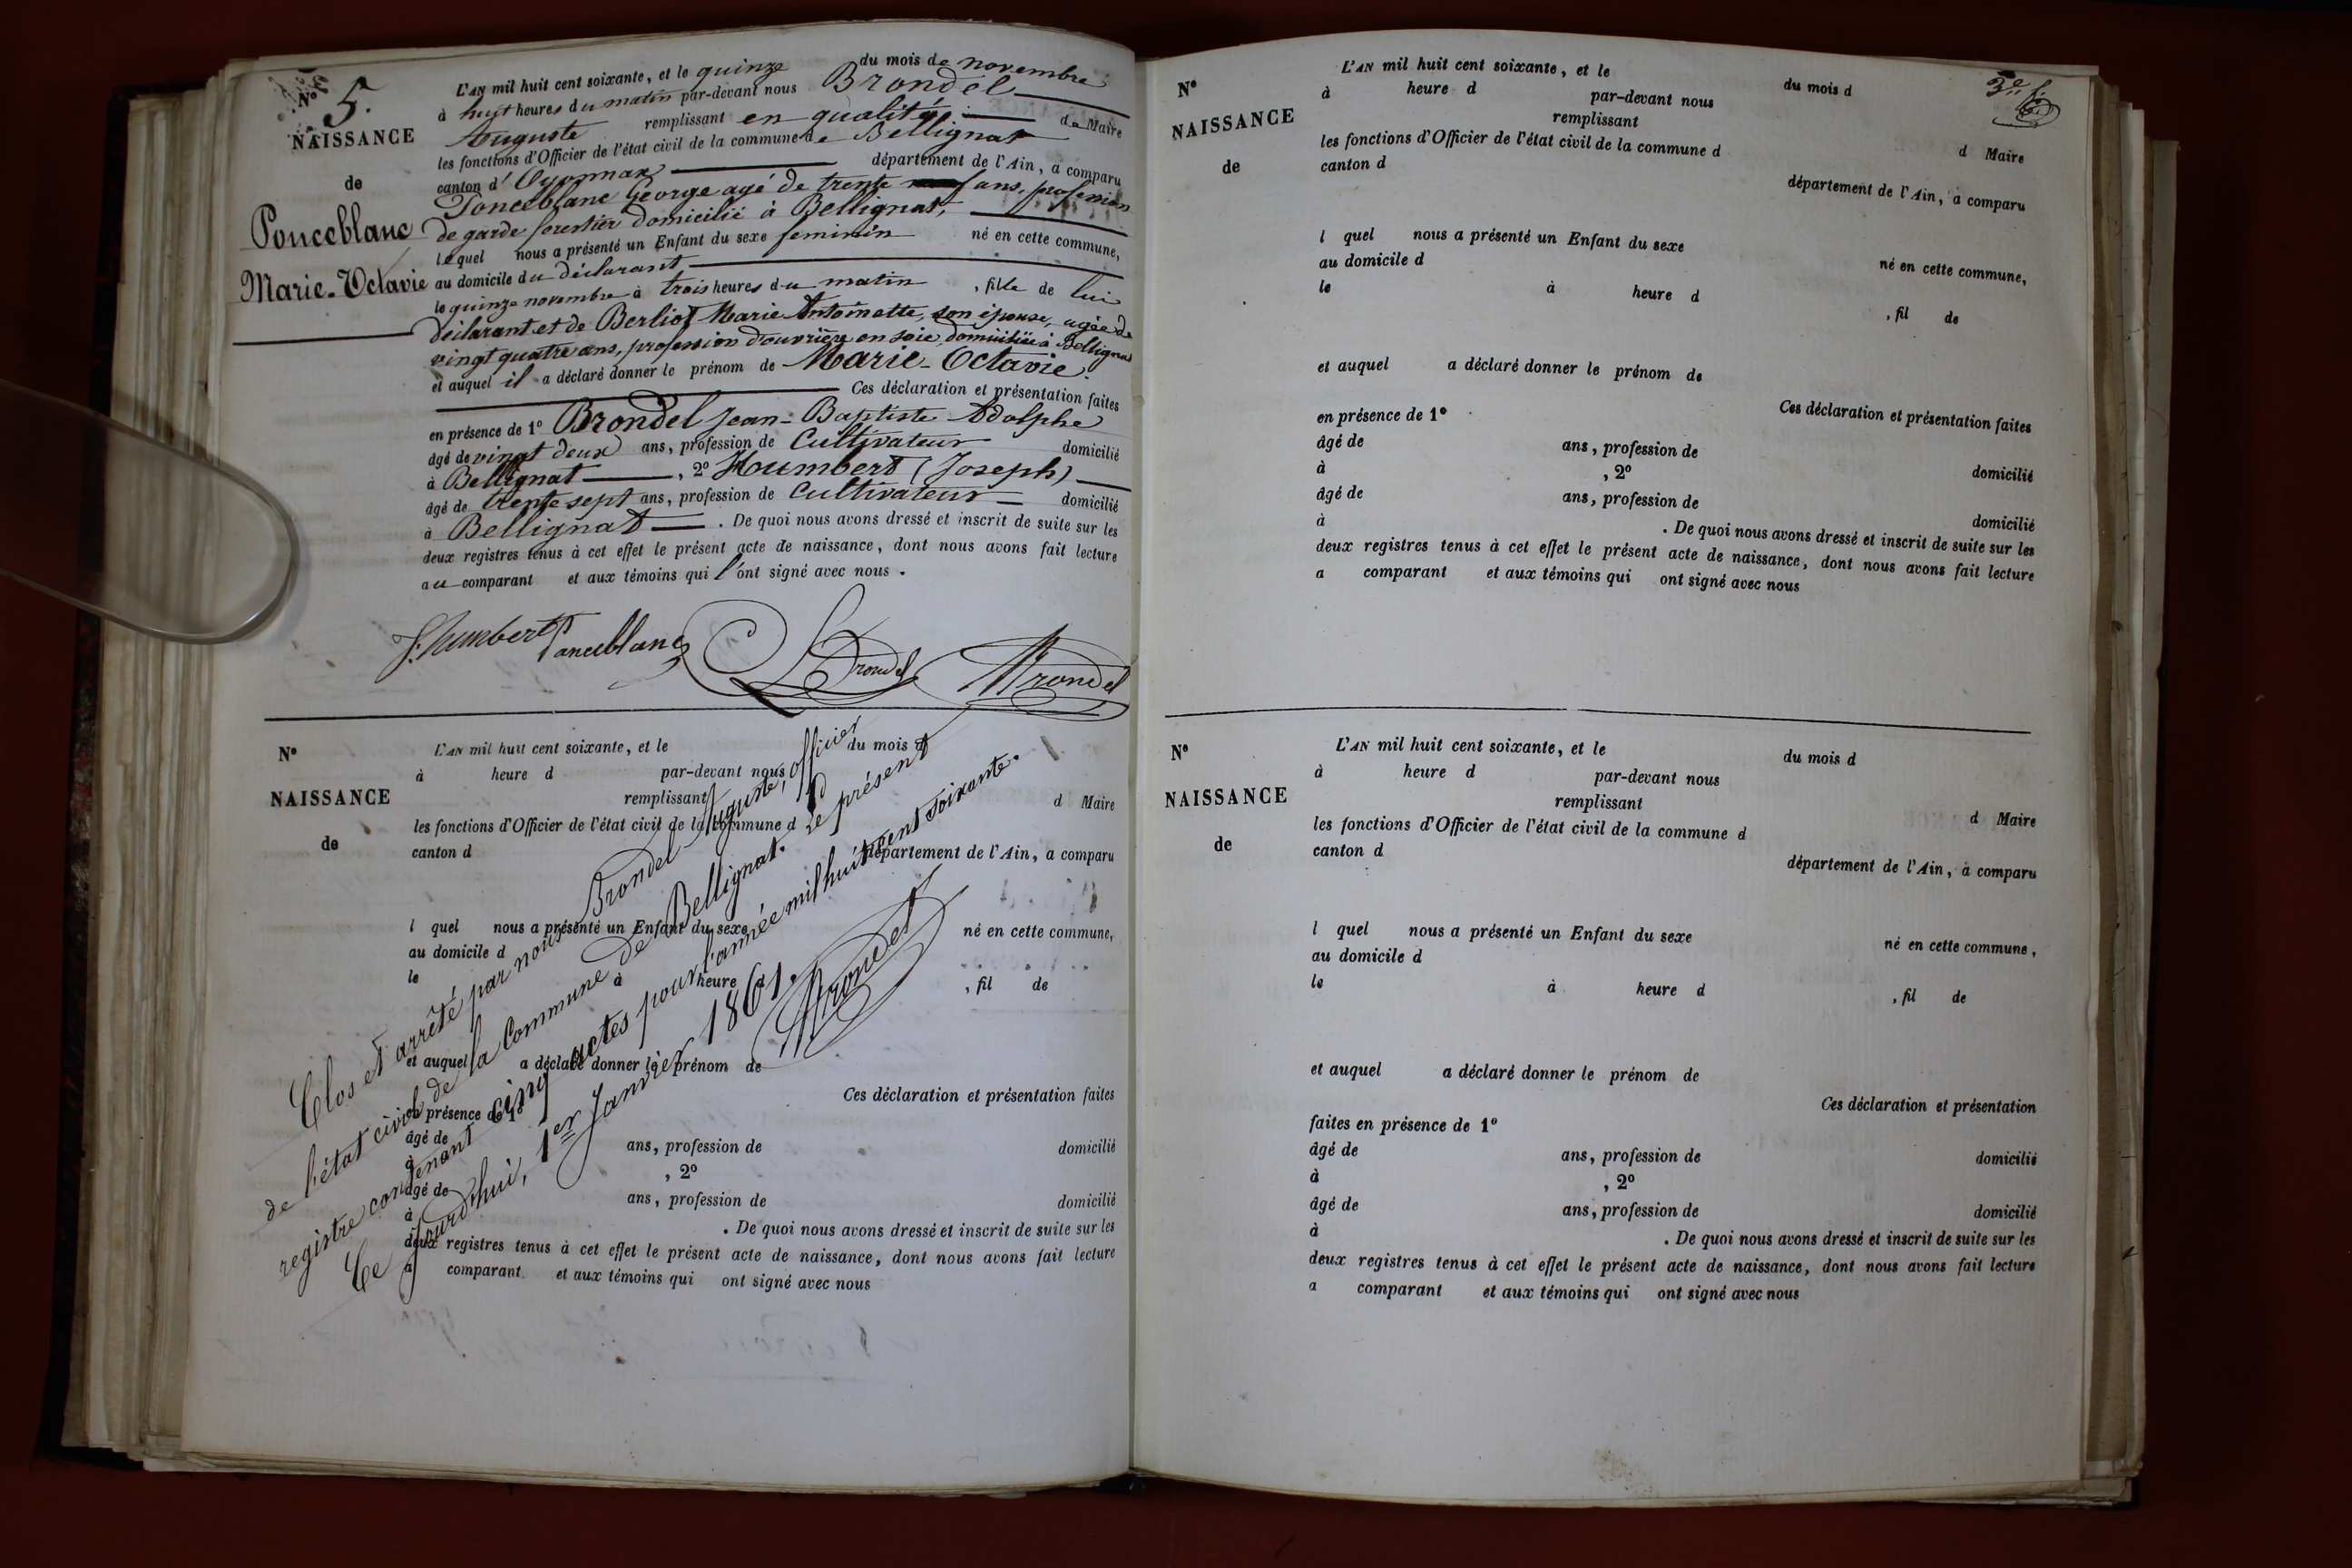 N° 5.
NAISSANCE
de
Ponceblanc
Marie-Octavie
L'AN mil huit cent soixante, et le quinze du mois de novembre
à huit heures du matin par-devant nous Brondel
Auguste remplissant en qualité de Maire
les fonctions d'Officier de l'état civil de la commune de Bellignat
canton d'Oyonnax département de l'Ain, a comparu
Ponceblanc George agé de trente ans, profession
de garde forestier domicilié à Bellignat,
lequel nous a présenté un Enfant du sexe feminin né en cette commune,
au domicile du déclarant
le quinze novembre à trois heures du matin, fille de lui
déclarant et de Berliot Marie Antoinette, son épouse, agée de
vingt quatre ans, profession d'ouvrière en soie, domiciliée à Bellignat
et auquel il a déclaré donner le prénom de Marie-Octavie.
Ces déclaration et présentation faites
en présence de 1° Brondel Jean-Baptiste Adolphe
âgé de vingt deux ans, profession de Cultivateur domicilié
à Bellignat, 2° Humbert (Joseph)
âgé de trente sept ans, profession de Cultivateur domicilié
à Bellignat. De quoi nous avons dressé et inscrit de suite sur les
deux registres tenus à cet effet le présent acte de naissance, dont nous avons fait lecture
au comparant et aux témoins qui l'ont signé avec nous.
J. Humbert Ponceblanc Brondel Brondel
N°
NAISSANCE
de
L'AN mil huit cent soixante, et le du mois d
à heure d par-devant nous
remplissant d Maire
les fonctions d'Officier de l'état civil de la commune d
canton d département de l'Ain, a comparu
l quel nous a présenté un Enfant du sexe né en cette commune,
au domicile d
le à heure , fil de
et auquel a déclaré donner le prénom de
Ces déclaration et présentation faites
en présence de 1°
âgé de ans, profession de domicilié
à , 2°
âgé de ans, profession de domicilié
à . De quoi nous avons dressé et inscrit de suite sur les
deux registres tenus à cet effet le présent acte de naissance, dont nous avons fait lecture
a comparant et aux témoins qui ont signé avec nous
Clos et arrêté par nous Brondel Auguste, officier
de l'état civil de la Commune de Bellignat. Le présent
registre contenant cinq actes pour l'année mil huit cent soixante.
Ce jourd'hui, 1er Janvier 1861.
Brondel
3e f.
N°
NAISSANCE
de
L'AN mil huit cent soixante, et le du mois d
à heure d par-devant nous
remplissant d Maire
les fonctions d'Officier de l'état civil de la commune d
canton d département de l'Ain, a comparu
l quel nous a présenté un Enfant du sexe né en cette commune,
au domicile d
le à heure d , fil de
et auquel a déclaré donner le prénom de
Ces déclaration et présentation faites
en présence de 1°
âgé de ans, profession de domicilié
à , 2°
âgé de ans, profession de domicilié
à . De quoi nous avons dressé et inscrit de suite sur les
deux registres tenus à cet effet le présent acte de naissance, dont nous avons fait lecture
a comparant et aux témoins qui ont signé avec nous
N°
NAISSANCE
de
L'AN mil huit cent soixante, et le du mois d
à heure d par-devant nous
remplissant d Maire
les fonctions d'Officier de l'état civil de la commune d
canton d département de l'Ain, a comparu
l quel nous a présenté un Enfant du sexe né en cette commune,
au domicile d
le à heure d , fil de
et auquel a déclaré donner le prénom de
Ces déclaration et présentation
faites en présence de 1°
âgé de ans, profession de domicilié
à , 2°
âgé de ans, profession de domicilié
à . De quoi nous avons dressé et inscrit de suite sur les
deux registres tenus à cet effet le présent acte de naissance, dont nous avons fait lecture
a comparant et aux témoins qui ont signé avec nous